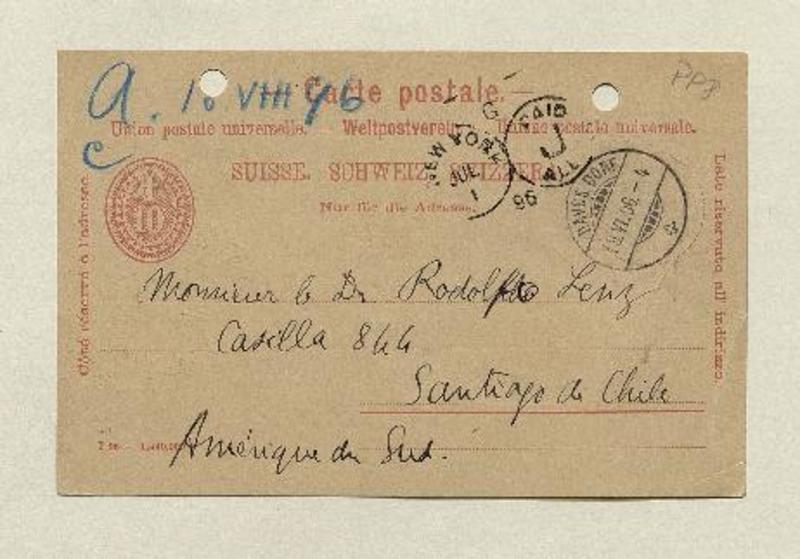 a. 10 VIII 96
c
PPJ
Carte postale.
Union postale universelle. — Weltpostverein. — Unione postale universale.
SUISSE. SCHWEIZ. SVIZZERA.
Nur für die Adresse.
Côté réservé à l'adresse.
Lato riservato all' indirizzo.
10
NEW YORK
JUL
1
96
G
PAID
J
ALL
DAVOS DORF
VI.96.- 4
Monsieur le Dr Rodolfo Lenz
Casilla 844
Santiago de Chile
Amérique du Sud.